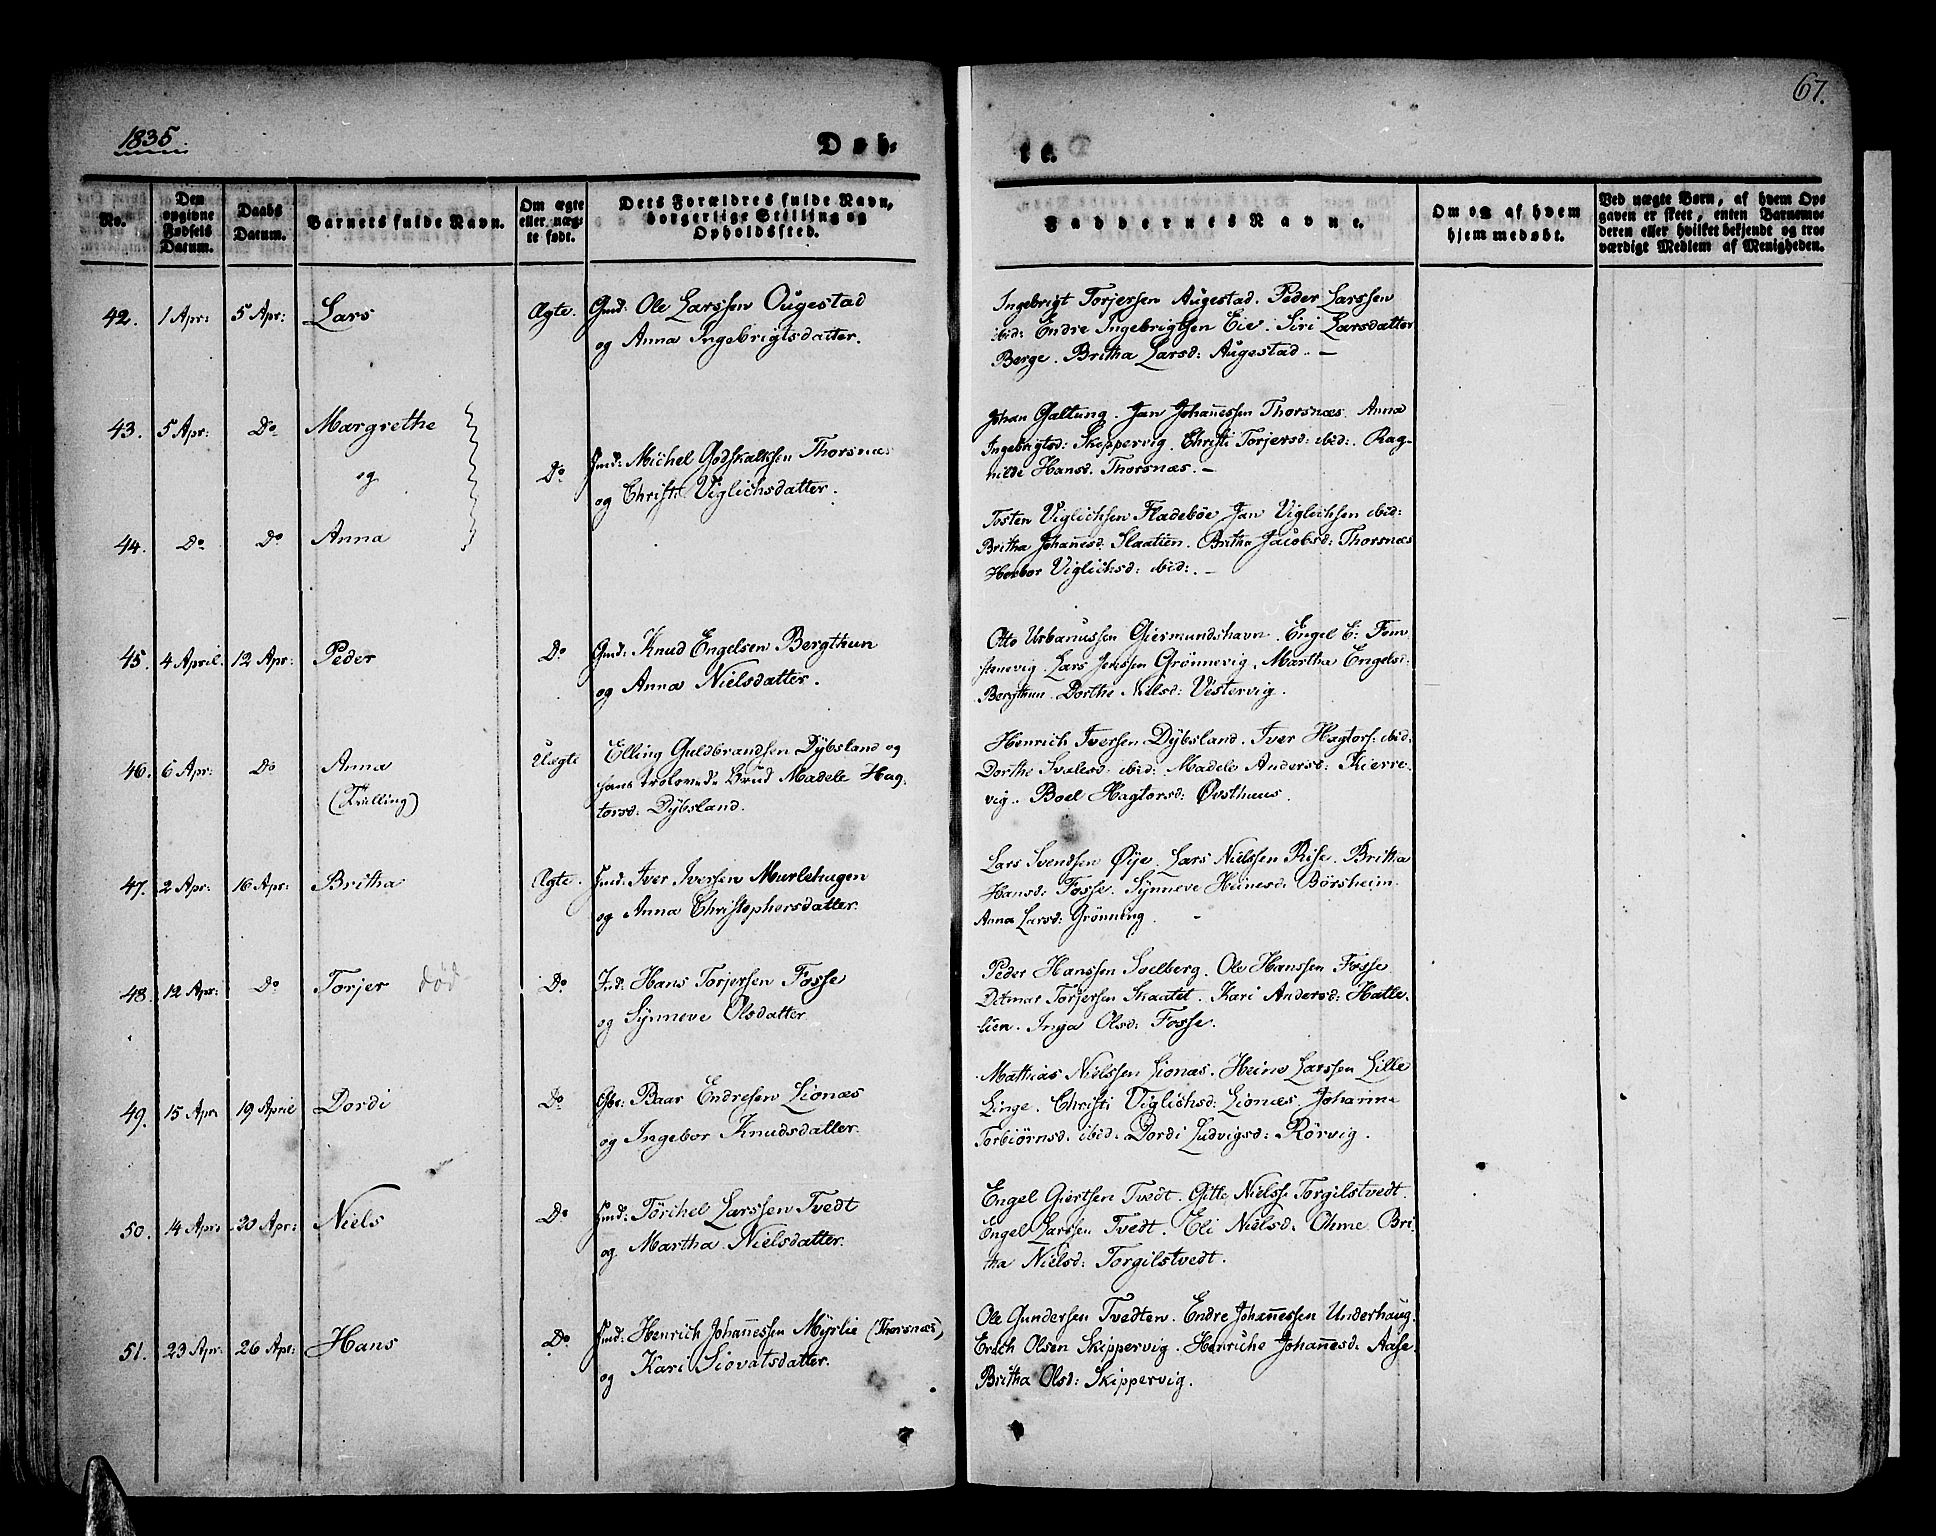 67.
1835
Døb-
te.
No.
Den opgivne Fødsels Datum.
Daabs Datum.
Barnets fulde Navn.
Om ægte eller uægte født.
Dets Forældres fulde Navn, borgerlige Stilling og Opholdssted.
Faddernes Navne.
Om og af hvem hjemmedøbt.
Ved uægte Børn, af hvem Opgaven er skeet, enten Barnemoderen eller hvilket bekjendt og troværdigt Medlem af Menigheden.
42. 1 Apr: 5 Apr: Lars Ægte. Gmd: Ole Larssen Ougestad
og Anna Ingebrigtsdatter.
Ingebrigt Torjersen Augestad. Peder Larssen
ibid: Endre Ingebrigtsen Eie. Siri Larsdatter
Berge. Britha Larsd: Augestad. –
43. 5 Apr: Do Margrethe
og
Do Hmd: Michel Godskalksen Thorsnæs
og Christi Viglichsdatter.
Johan Galtung. Jan Johanessen Thorsnæs. Anna
Ingebrigtsd: Skippervig. Christi Torjersd: ibid: Rag-
nilde Hansd. Thorsnæs. –
44. Do Do Anna
Tosten Viglichsen Fladebøe Jan Viglichsen ibid:
Britha Johanesd. Slaatten. Britha Jacobsd: Thorsnæs
Herbor Viglichsd: ibid: –
45. 4 April. 12 Apr: Peder Do Gmd: Knud Engelsen Bergthun
og Anna Nielsdatter.
Otto Urbanussen Giermundshavn. Engel E: Fom-
senevig. Lars Jenssen Grønnevig. Martha Engelsd:
Bergthun. Dorthe Nielsd: Vestervig.
46. 6 Apr: Do Anna
(Trilling)
Uægte Elling Guldbrandsen Dÿbsland og
hans trolovede Brud Madele Hag-
torsd: Dÿbsland.
Henrich Iversen Dÿbsland. Iver Hagtors: ibid:
Dorthe Svalesd: ibid: Madele Andersd: Kierre-
vig. Boel Hagtorsd: Øvsthuus.
47. 2 Apr: 16 Apr: Britha Ægte. Hmd: Iver Iversen Murlehagen
og Anna Christophersdatter.
Lars Svendsen Øÿe. Lars Nielssen Rise. Britha
Hansd: Fosse. Sÿnneve Heinesd: Børsheim.
Anna Larsd: Grønning. –
48. 12 Apr: Do Torjer død Do Ind: Hans Torjersen Fosse
og Sÿnneve Olsdatter.
Peder Hanssen Solberg. Ole Hanssen Fosse
Detmar Torjersen Skaatet. Kari Andersd: Hatle-
lien. Inga Olsd: Fosse.
49. 15 Apr 19 April Dordi Do Gbr: Baar Endresen Lionæs
og Ingebor Knudsdatter.
Mathias Nielssen Lionæs. Heine Larssen Lille
Linge. Christi Viglichsd: Lionæs. Johanne
Torbiørnsd. ibid: Dordi Ludvigsd: Rørvig.
50. 14 Apr: 20 Apr: Niels Do Hmd: Törchel Larssen Tvedt
og Martha Nielsdatter.
Engel Giertsen Tvedt. Gitle Nielsse Torgilstvedt.
Engel Larssen Tvedt. Eli Nielsd: Ohme. Bri-
tha Nielsd: Torgilstvedt.
51. 23 Apr. 26 Apr: Hans Do Hmd: Henrich Johanessen Mÿrlie (Thorsnæs)
og Kari Siovatsdatter.
Ole Gundersen Tvedten. Endre Johanessen Underhaug.
Erich Olsen Skippervig. Henriche Johanesd. Aase.
Britha Olsd: Skippervig.